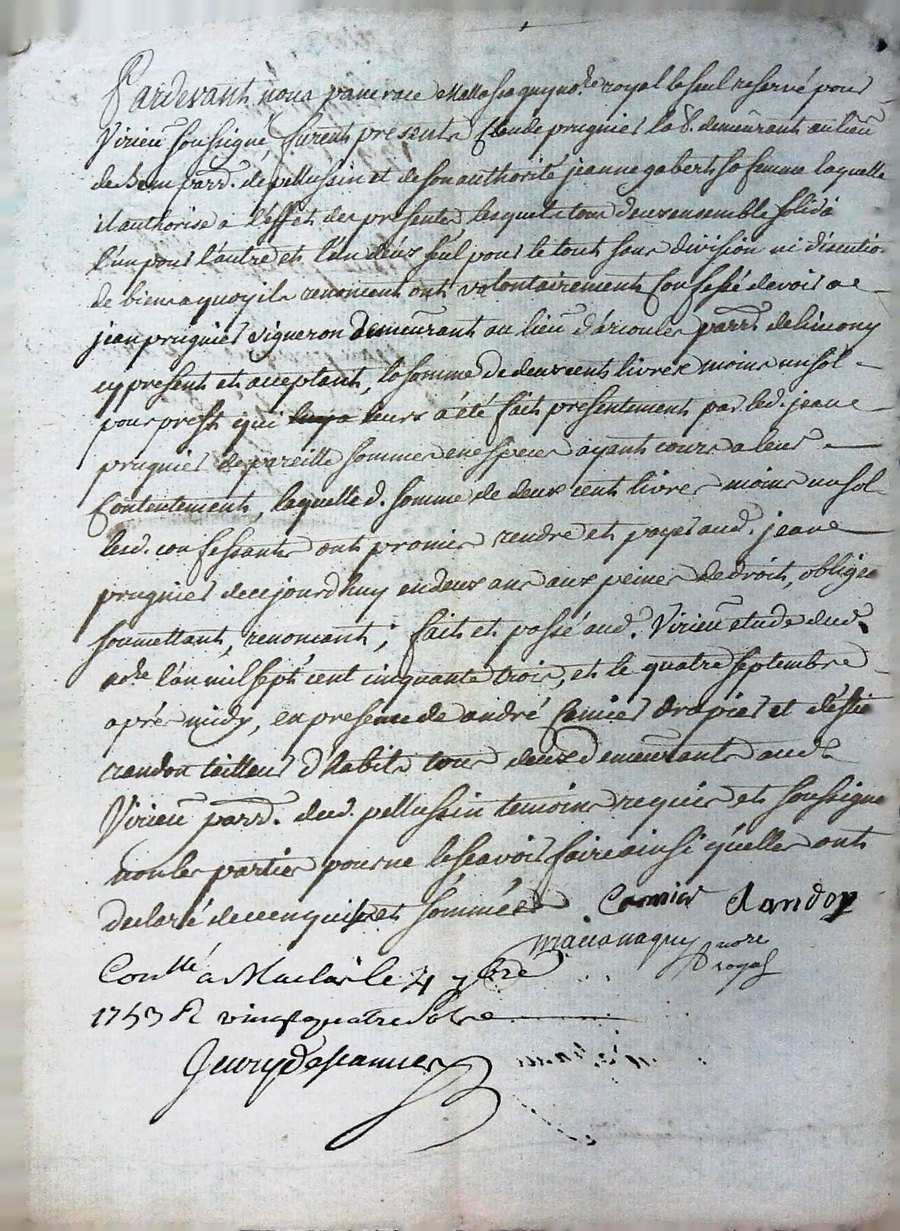 Pardevant nous pancrace Mattassaguy no.re royal le seul reservé pour
Virieu soussigné, furent presents Claude prugnier la.r demeurant au lieu
de parr. de pellussin et de son authorité jeanne gabert sa femme laquelle
il authorise a l'effet des presentes, lesquels tous deux ensemble solid.t
l'un pour l'autre et l'un d'eux seul pour le tout sans division ni discution
de biens a quoy ils renoncent ont volontairement confessé devoir a
jean prugnier vigneron demeurant au lieu d'arcoules parr. de limony
cy present et acceptant, la somme de deux cent livres moins un sol
pour prest qui leurs a été fait presentement par led. jean
prugnier de pareille somme en especes ayant cours a leur
contentement, laquelle d. somme de deux cent livres moins un sol
lesd. confessants ont promis rendre et payer aud. jean
prugnier de cejourd'huy en deux ans aux peines de droit, obligeant
soumettant, renoncant; fait et passé aud. Virieu etude dud.
no.re l'an mil sept cent cinquante trois, et le quatre septembre
aprés midy, en presence de andré Cornier drapier et
randon tailleur d'habits tous deux demeurants aud.
Virieu parr. dud. pellussin temoins requis et soussignés
non les parties pour ne le scavoir faire ainsi qu'elles ont
declaré de ce enquises et sommées Cornier Randon
nore
royal
Con.llé a Maclas le 4 7bre
1753 R vingt quatre sols